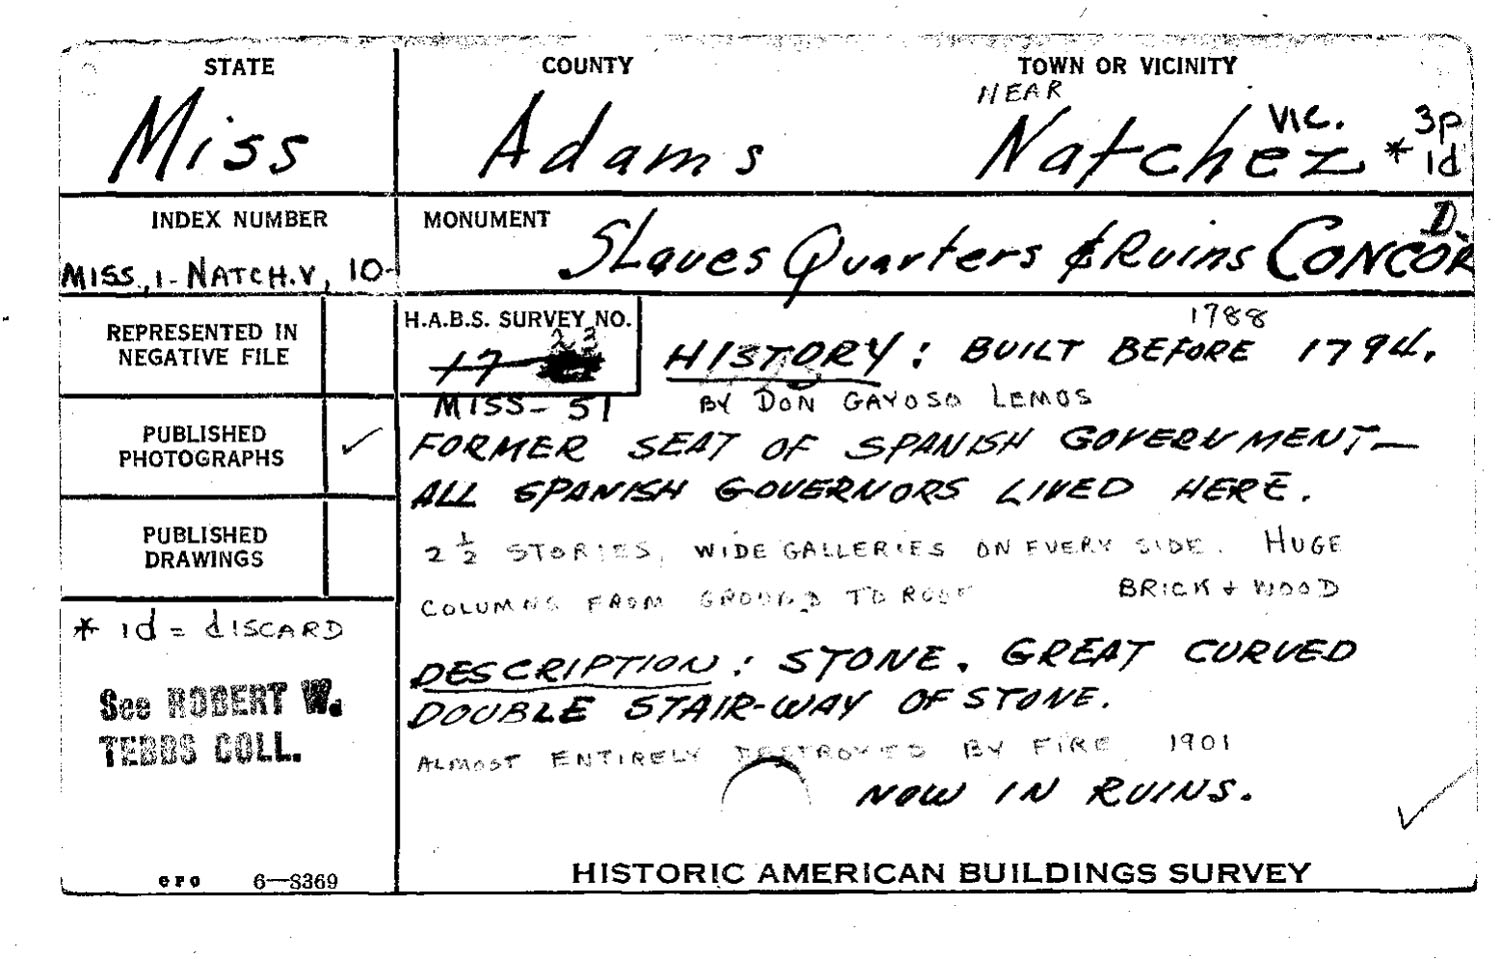 STATE
COUNTY
TOWN OR VICINITY
Miss
Adams
NEAR
Natchez VIC. * 3p
1d
INDEX NUMBER
MISS., 1-NATCH.V, 10-
MONUMENT
Slaves Quarters & Ruins CONCOR
D.
REPRESENTED IN
NEGATIVE FILE
H.A.B.S. SURVEY NO.
17
MISS-51
1788
HISTORY: BUILT BEFORE 1794.
BY DON GAYOSO LEMOS
PUBLISHED
PHOTOGRAPHS ✓
FORMER SEAT OF SPANISH GOVERNMENT—
ALL SPANISH GOVERNORS LIVED HERE.
PUBLISHED
DRAWINGS
2 1/2 STORIES, WIDE GALLERIES ON EVERY SIDE. HUGE
COLUMNS FROM GROUND TO ROOF BRICK + WOOD
* 1d = dISCARD
DESCRIPTION: STONE. GREAT CURVED
DOUBLE STAIR-WAY OF STONE.
See ROBERT W.
TEBBS COLL.
ALMOST ENTIRELY DESTROYED BY FIRE 1901
NOW IN RUINS.
GPO 6—8369
HISTORIC AMERICAN BUILDINGS SURVEY